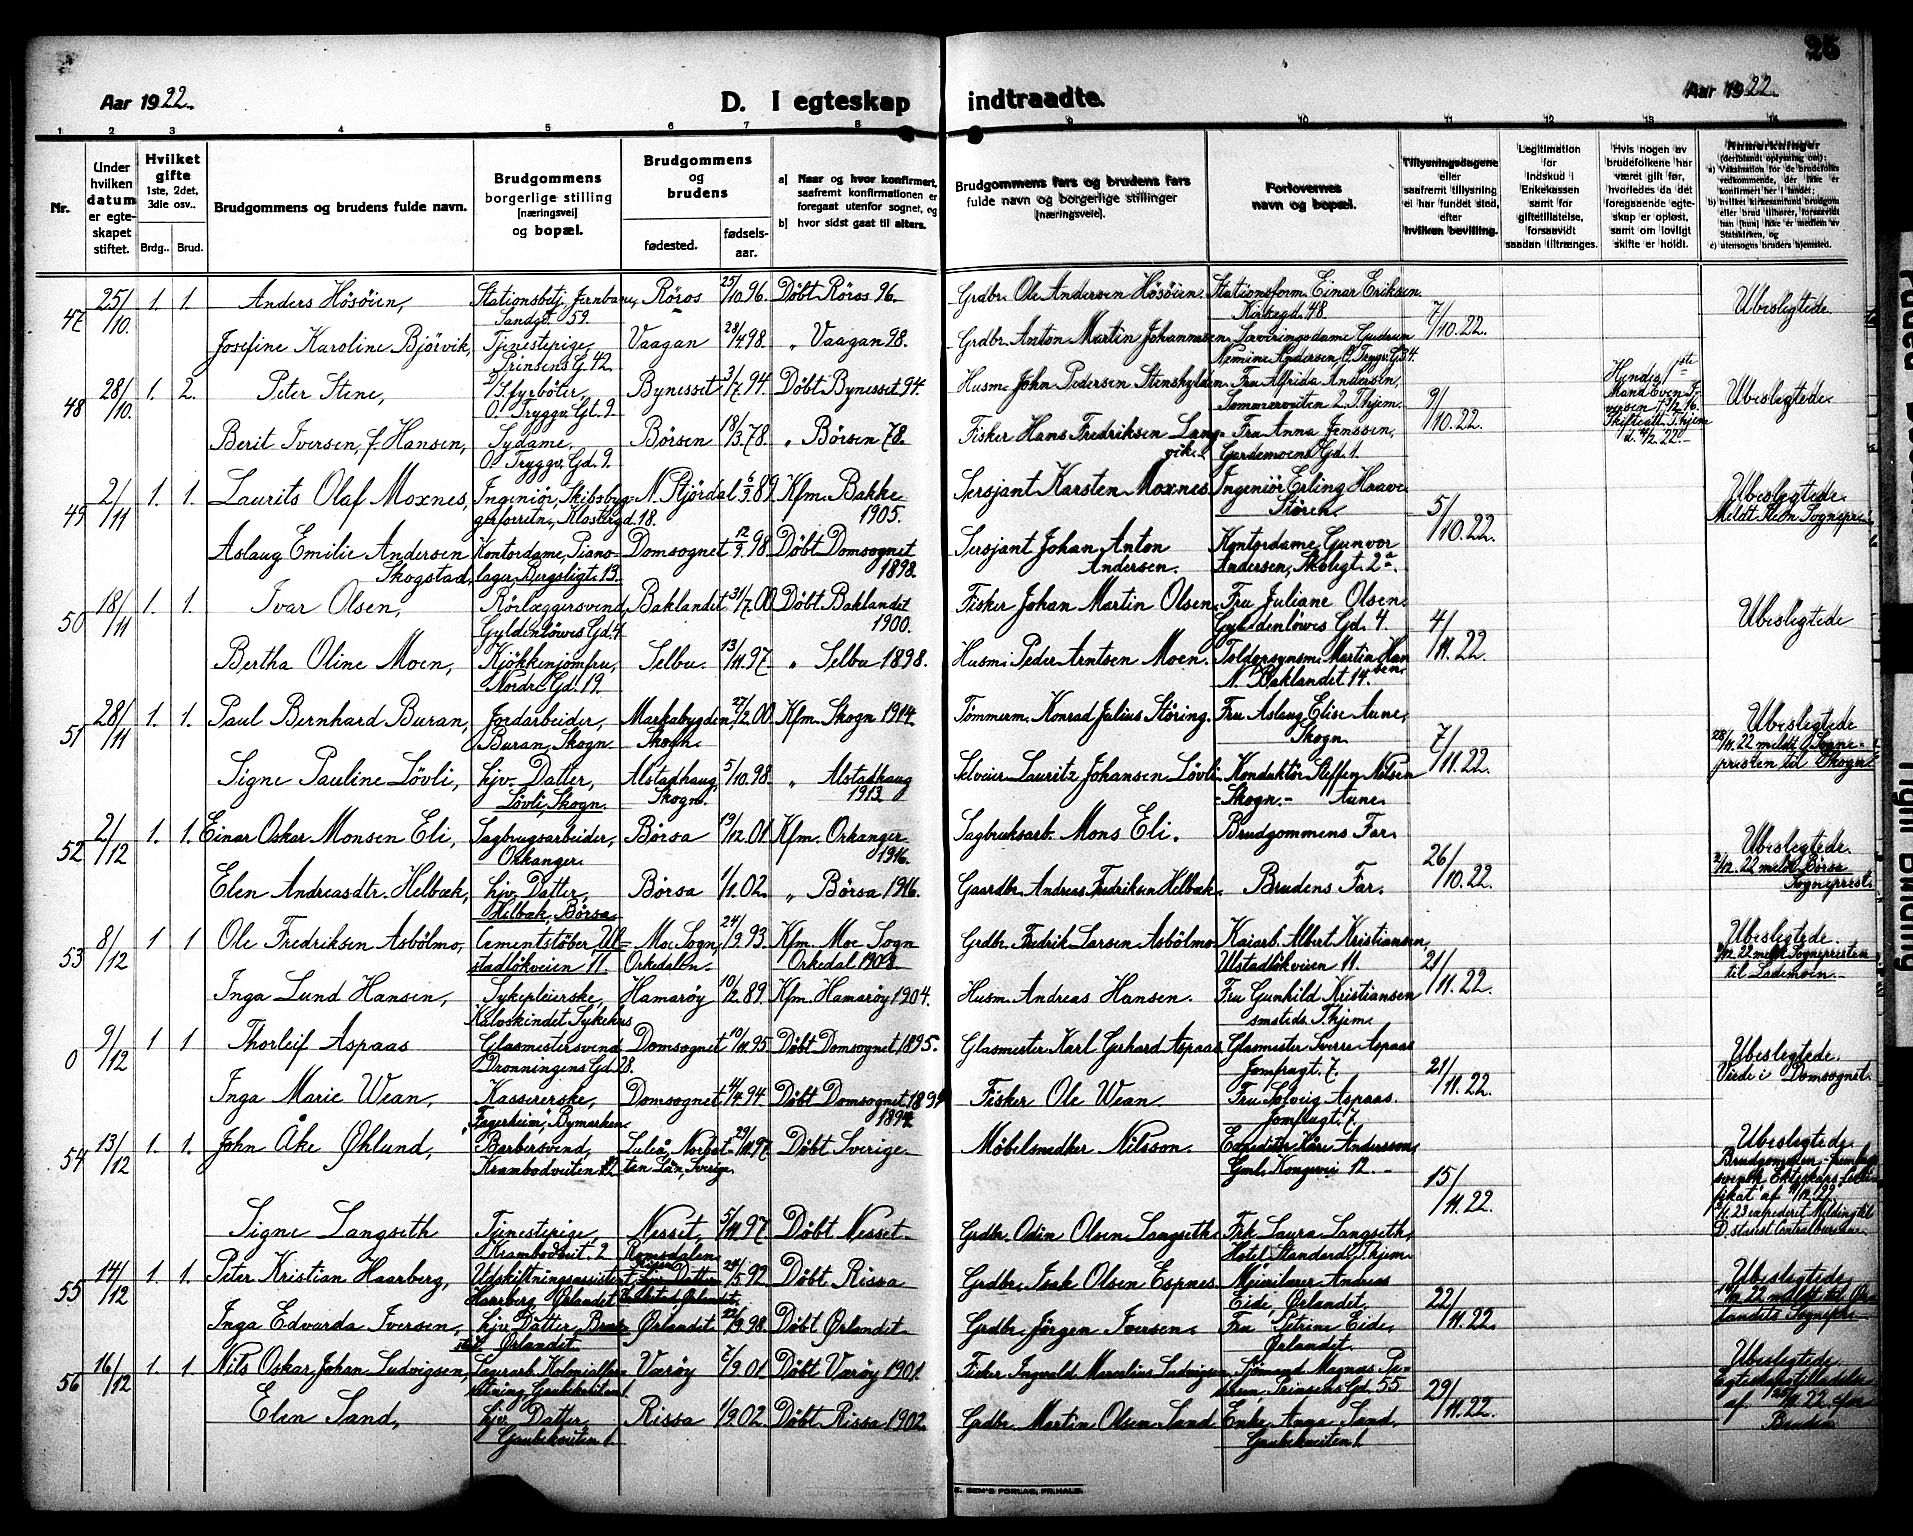 25
Aar 1922.
D. I egteskap indtraadte.
Aar 1922.
1 2 3 4 5 6 7 8 9 10 11 12 13 14
Nr.
Under hvilken datum er egteskapet stiftet.
Hvilket gifte 1ste, 2det, 3die osv..
Brdg.. Brud.
Brudgommens og brudens fulde navn.
Brudgommens borgerlige stilling [næringsvei] og bopæl.
Brudgommens og brudens
fødested.
fødselsaar.
a) Naar og hvor konfirmert, saafremt konfirmationen er foregaat utenfor sognet, og
b) hvor sidst gaat til alters.
Brudgommens fars og brudens fars fulde navn og borgerlige stillinger [næringsveie].
Forlovernes navn og bopæl.
Tillysningsdagene eller saafremt tillysning ei har fundet sted, efter hvilken bevilling.
Legitimation for Indskud i Enkekassen samt for giftetilladelse, forsaavidt saadan tiltrænges.
Hvis nogen av brudefolkene har været gift før, hvorledes da det foregaaende egteskap er opløst, samt om lovligt skifte er holdt.
Anmerkninger (deriblandt oplysning om):
a) Vaksination for de brudefolks vedkommende, der ikke er konfirmert her i landet;
b) hvilket kirkesamfund brudgom eller brud tilhører, forsaavidt han [hun] ikke er medlem av Statskirken, og
c) utensogns bruders hjemsted.
47 25/10. 1. 1. Anders Hösöien, Stationsbetj. Jernbane, Sandgt. 59. Röros 25/10 96. Döbt Röros 96. Grdbr. Ole Andersen Hösöien. Stationsform. Einar Eriksen. Kirkegd. 48. 7/10. 22. Ubeslegtede
Josefine Karoline Bjørvik, Tjenestepige, Prinsens G. 42. Vaagan 28/4 98. " Vaagan 98. Grdbr. Anton Martin Johannesen. Serveringsdame Gudrun Nemine Andersen O. Tryggv. G. 34.
48 28/10. 1. 2. Peter Stene, D/S. fyrböter, O. Tryggv. Gt. 9. Bynesset 3/7. 94. Döbt Bynesset 94. Husm. John Pedersen Stenshylden. Fru Alfrida Andersen, Sommerveiten 2, T.hjem. 9/10. 22. Hendes 1ste Mand Even Iversen Skifteatt. T.hjem Ubeslegtede
Berit Iversen, f. Hansen, Sydame, O. Tryggv. Gd. 9. Börsen 18/3. 78. " Börsen 78. Fisker Hans Fredriksen Langvik. Fru Anna Jenssen, Gardemoens Gd. 1.
49 2/11 1. 1. Laurits Olaf Moxnes, Ingeniør, Skibsbyggerforretn, Klostergd. 18. N. Stjördal 6/9. 89. Kfm. Bakke 1905. Sersjant Karsten Moxnes. Ingeniör Erling Haave Stören. 5/10. 22. Ubeslegtede. Meldt Sognepr.
Aslaug Emilie Andersen Skogstad, Kontordame, Pianolager, Bergsligt. 13. Domsognet 12/9. 98. Döbt Domsognet 1898. Sersjant Johan Anton Andersen. Kontordame Gunvor Andersen, Skoligt. 2a.
50 18/11 1. 1. Ivar Olsen, Rörlæggersvend, Gyldenlöwes Gd. 4. Baklandet 31/7. 00. Döbt Baklandet 1900. Fisker Johan Martin Olsen. Fru Juliane Olsen. Gyldenlöwes Gd. 4. 4/11. 22. Ubeslegtede
Bertha Oline Moen, Kjökkenjomfru, Nordre Gd. 19. Selbu. 13/11. 97. " Selbu 1898. Husm. Peder Arntsen Moen. Toldopsynsm. Martin Hansen. N. Baklandet 14.
51 28/11 1. 1. Paul Bernhard Buran, Jordarbeider, Buran, Skogn. Markabygden, Skogn. 27/2. 00. Kfm. Skogn 1914. Tömmerm. Konrad Julius Störing. Fru Aslaug Elise Aune, Skogn. 7/11. 22. Ubeslegtede 28/11. 22 meldt Sognepresten til Skogn
Signe Pauline Lövli, hjv. Datter, Lövli, Skogn. Alstadhaug, Skogn. 5/10. 98. " Alstadhaug 1913. Selveier Lauritz Johansen Lövli. Konduktör Steffen Nilsen Aune. -Skogn.-
52 2/12 1. 1. Einar Oskar Monsen Eli, Sagbrugsarbeider, Orkanger. Börsa 13/12. 01. Kfm. Orkanger 1916. Sagbruksarb. Mons Eli. Brudgommens Far. 26/10. 22. Ubeslegtede. 2/12. 22 meldt Börsa Sogneprest.
Elen Andreasdtr. Helbæk, hjv. Datter, Helbæk, Börsa. Börsa 1/1. 02. " Börsa 1916. Gaardbr. Andreas Fredriksen Helbæk. Brudens Far.
53 8/12 1 1 Ole Fredriksen Asbölmo, Cementstöber Ulstadlökveien 11. Moe Sogn, Orkedalen. 24/9. 93. Kfm. Moe Sogn Orkedal 1908. Grdbr. Fredrik Larsen Asbölmo. Kaiarb. Albert Kristiansen, Ulstadlökveien 11. 21/11. 22. Ubeslegtede. 8/12. 22 meldt Sognepresten til Lademoen.
Inga Lund Hansen, Sykepleierske, Kalvskindet Sykehus Hamaröy 10/2. 89. Kfm. Hamaröy 1904. Husm. Andreas Hansen. Fru Gunhild Kristiansen smsteds. T.hjem.
0 9/12 1 1 Thorleif Aspaas Glasmestersvend Dronningens Gd. 28. Domsognet 10/11. 95. Döbt Domsognet 1895. Glasmester Karl Gerhard Aspaas. Glasmester Sverre Aspaas Jomfrugt. 7. 21/11. 22. Ubeslegtede. Viede i Domsognet.
Inga Marie Wean, Kassererske, Fagerheim, Bymarken. Domsognet 4/4 94. Döbt Domsognet 1894 1894. Fisker Ole Wean. Fru Solveig Aspaas. Jomfrugt. 7.
54 13/12 1. 1. John Åke Öhlund, Barbersvend, Krambodveiten Luleå, Norbotten Län, Sverige. 29/11. 97. Döbt Sverige. Möbelsnedker Nilsson. Anderssen, Gml. Kongevei 12. 15/11. 22. Ubeslegtede. Brudgommen svensk
Signe Langseth Tjenestepige, Krambodveit. 2 Nesset, Romsdalen 5/11. 97. Döbt Nesset. Grdbr. Odin Olsen Langseth. Frk. Laura Langseth, Hotel Standard, T.hjem.
55 14/12 1. 1. Peter Kristian Haarberg, Udskiftningsassistent, Haarberg, Ørlandet Rissa 24/5 92 Döbt Rissa Grdbr. Isak Olsen Espnes. Meierilærer Andreas Eide, Ørlandet. 22/11. 22. Ubeslegtede 22 meldt til Ørlandets Sognepr.
Inga Edvarda Iversen, hjv. Datter, Ørlandet. Ørlandet 22/9. 98. Döbt Ørlandet. Grdbr. Jörgen Iversen. Fru Petrine Eide, Ørlandet.
56 16/12 1. 1. Nils Oskar Johan Ludvigsen, Lagerarb. Gaubekveiten 1. Varöy 7/9. 01 Döbt Varöy 1901. Fisker Ingvald Marcelius Ludvigsen. Sjömand Magnus Prinsens Gd. 55 29/11. 22. Ubeslegtede. Egteskapstilladelse af 25/11 22 for Bruden
Elen Sand, hjv. Datter, Gaubekveiten 1. Rissa 1/9. 02. Döbt Rissa 1902. Grdbr. Martin Olsen Sand Enke Anga Sand, Gaubekveiten 1.
E. SEM'S FORLAG, FR.HALD.